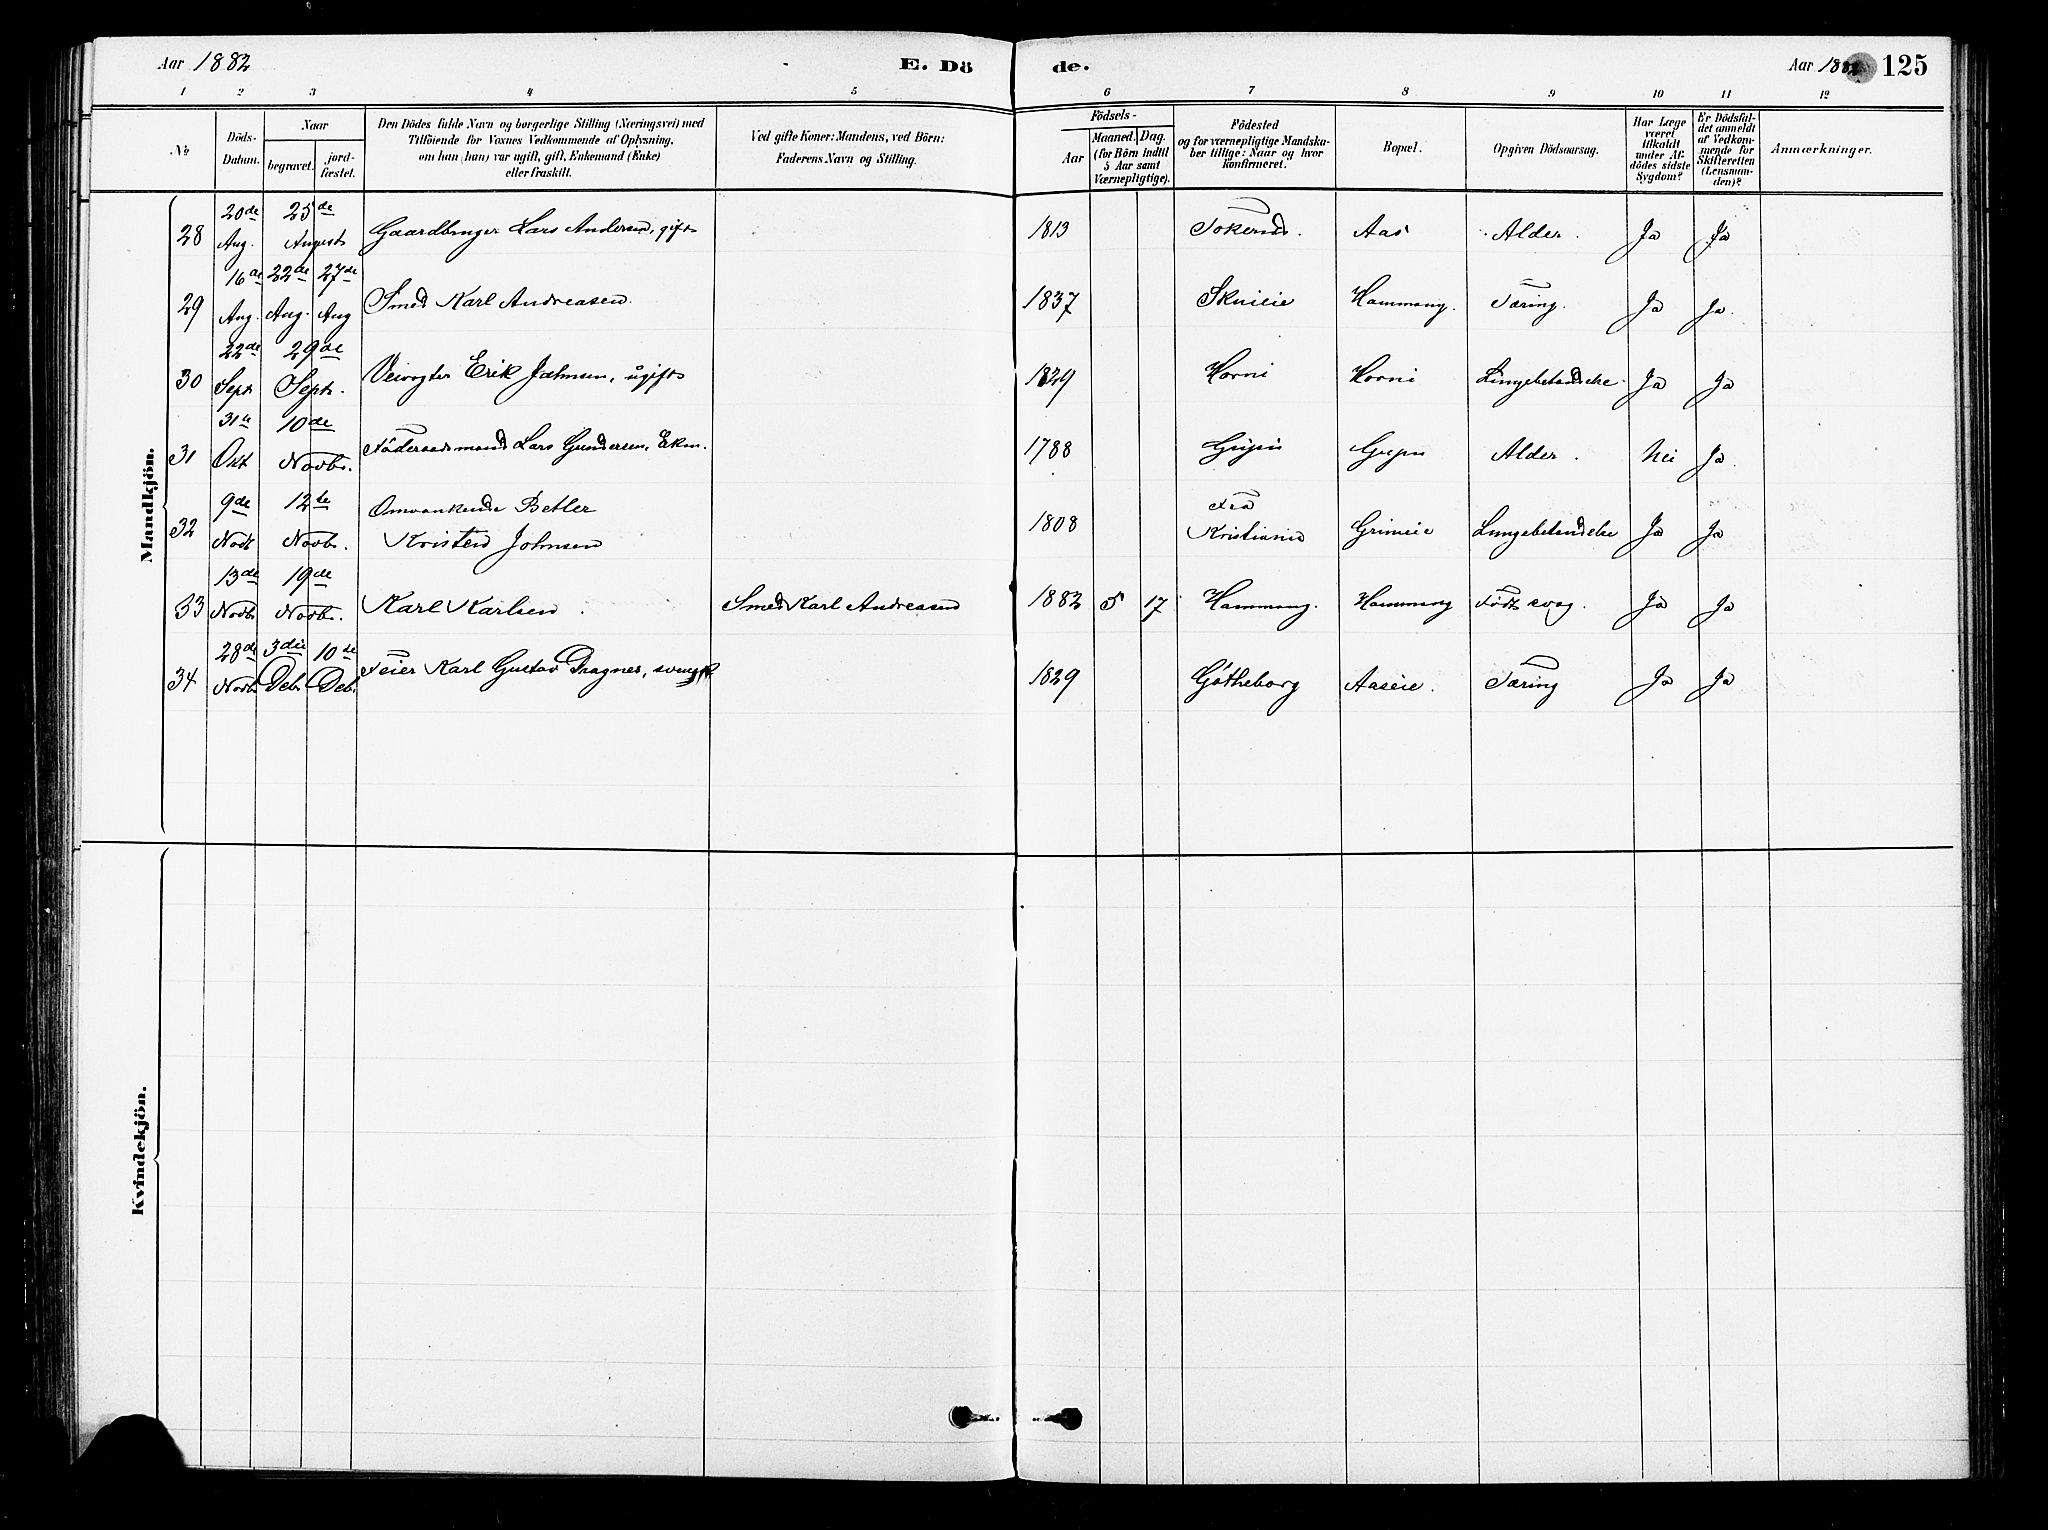 Aar 1882 E. Dö de. Aar 1882 125
1 2 3 4 5 6 7 8 9 10 11 12
№ Döds-Datum. Naar begravet. jord-fæstet. Den Dödes fulde Navn og borgerlige Stilling (Næringsvei) med Tilföiende for Voxnes Vedkommende af Oplysning, om han (hun) var ugift, gift, Enkemand (Enke) eller fraskilt. Ved gifte Koner: Mandens, ved Börn: Faderens Navn og Stilling. Födsels- Aar Maaned. Dag. (for Börn indtil 5 Aar samt Værnepligtige). Födested og for værnepligtige Mandskaber tillige: Naar og hvor konfirmeret. Bopæl. Opgiven Dödsaarsag. Har Læge været tilkaldt under Afdödes sidste Sygdom? Er Dödsfaldet anmeldt af Vedkommende for Skifteretten (Lensmanden)? Anmærkninger.
Mandkjön.
28 20de Aug. 25de August Gaardbruger Lars Andersen, gift 1813 Tokerud. Aas Alder. Ja Ja
29 16de Aug. 22de Aug. 27de Aug Smed Karl Andreasen. 1837 Skuieie Hammang. Tæring. Ja Ja.
30 22de Sept 29de Sept. Veivogter Erik Johnsen, ugift 1829 Horni Horni Lungebetændelse. Ja Ja
31 31te Okt 10de Novbr. Föderaadsmand Lars Gundersen, Ekm. 1788 Alder. Nei Ja.
32 9de Novb 12te Novbr. Omvankende Betler Kristen Johnsen 1808 Fra Kristiania Grimeie Lungebetændelse Ja Ja
33 13de Novb. 19de Novb. Karl Karlsen. Smed Karl Andreasen 1882 5 17 Hammang. Hammang Födt svag. Ja Ja
34 28de Novb. 3die Deb. 10de Deb. Feier Karl Gustav Dragner, svensk 1829 Götheborg Aaseie. Tæring Ja Ja
Kvindekjön.